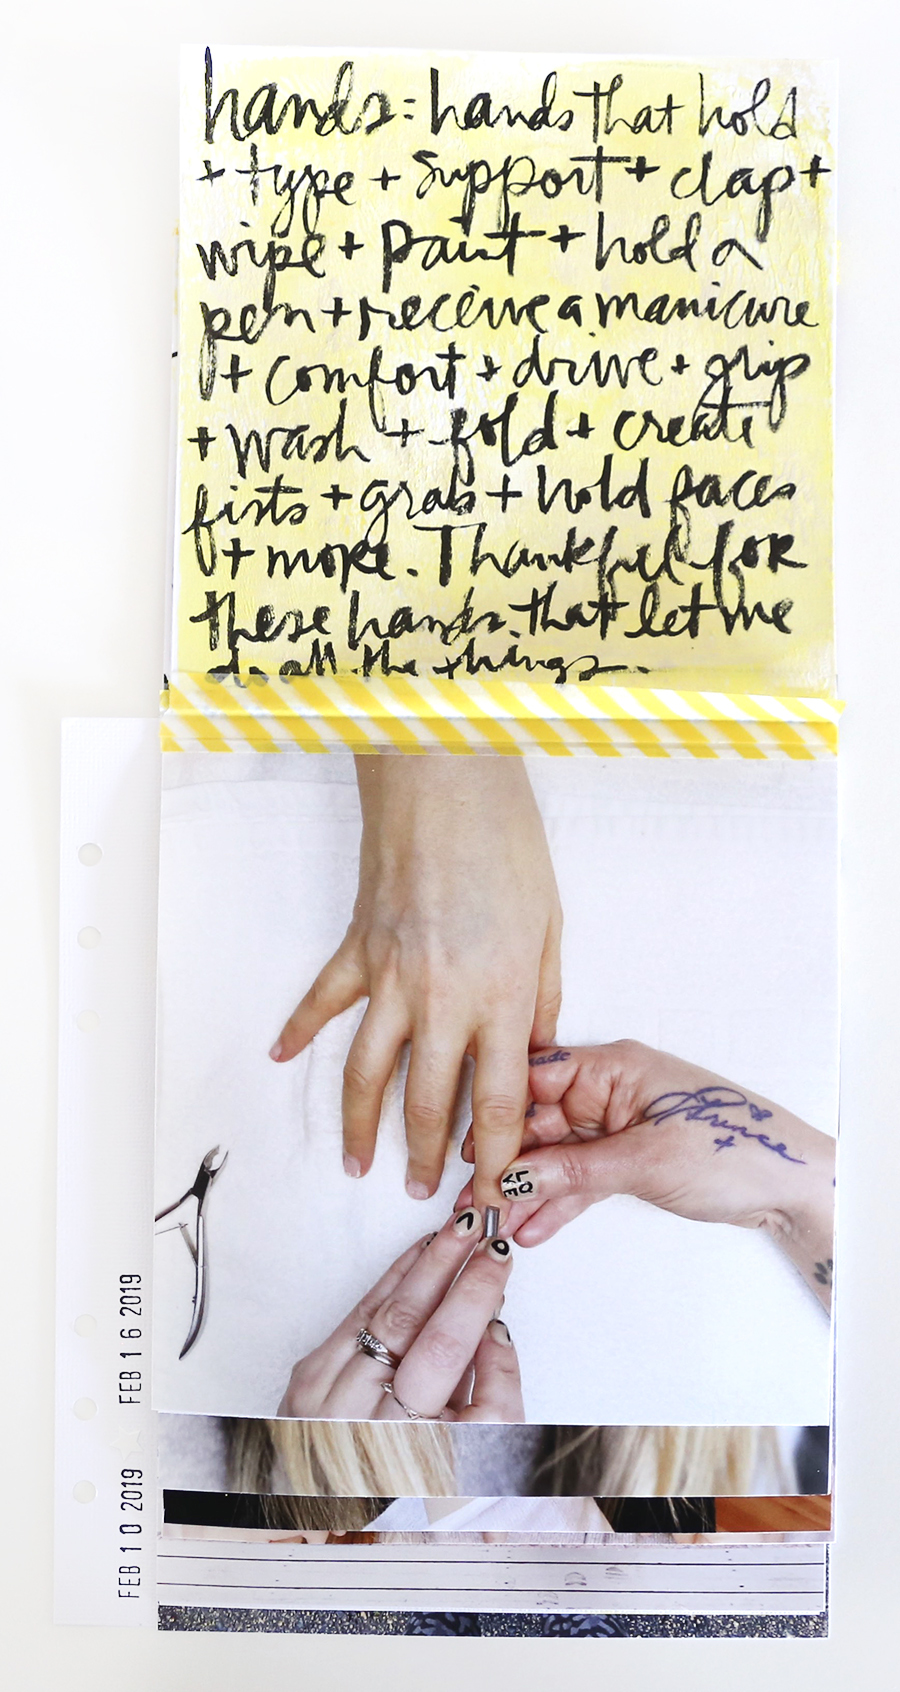 hands: hands that hold
+ type + support + clap +
wipe + paint + hold a
pen + receive a manicure
+ comfort + drive + grip
+ wash + fold + create
fists + grab + hold faces
+ more. Thankful for
these hands that let me
do all the things.
LO
VE
Prince
FEB 16 2019
FEB 10 2019